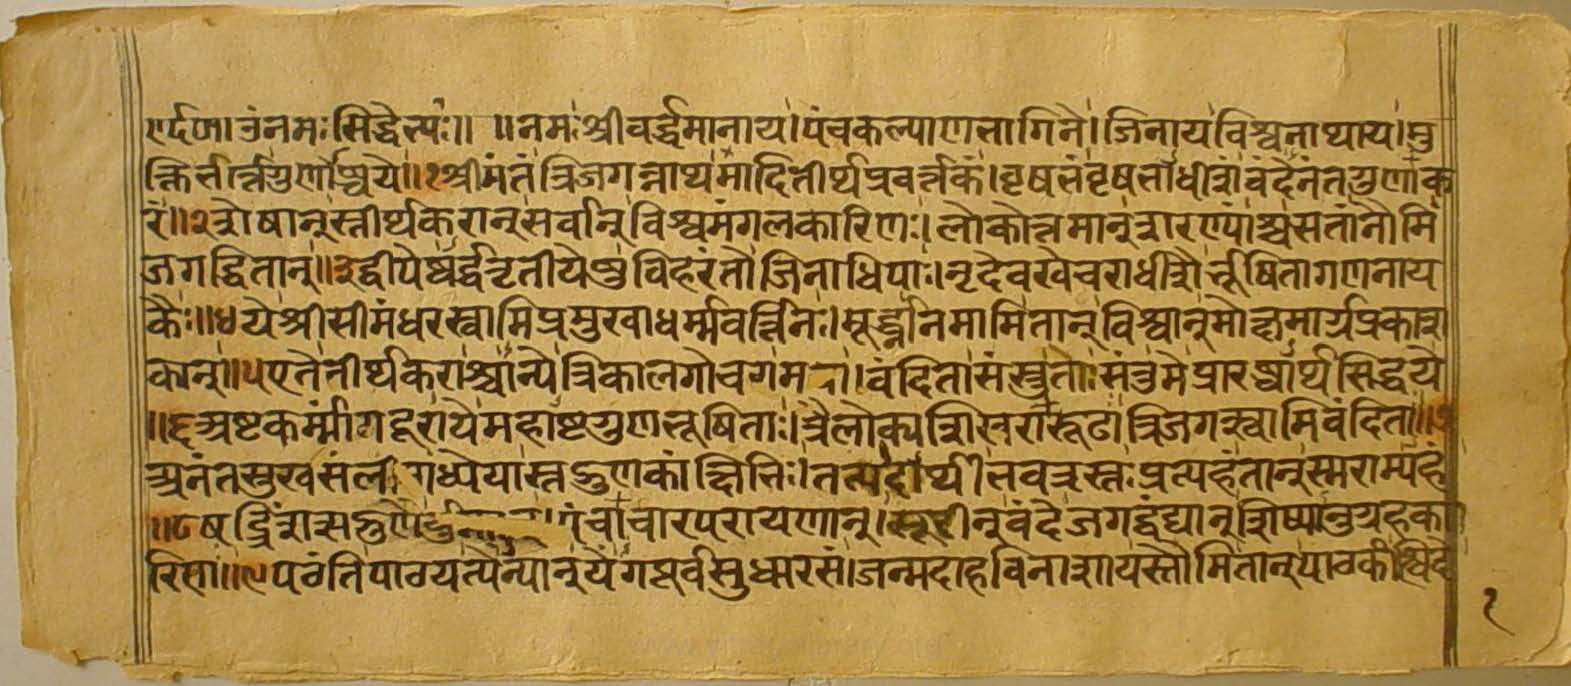 एर्द०॥ॐनमः सिद्धेभ्यः॥ ॥नमः श्रीवर्द्धमानाय।पंचकल्याणभागिने।जिनायविश्वनाथाय।मु
क्तिभर्त्रेगुणाब्धये॥१श्रीमंतंत्रिजगन्नाथमादितीर्थप्रवर्त्तकं।वृषभंवृषभाधीशंवंदेनंतगुणाक
रं॥२शेषान्स्तीर्थकरान्सर्वान्विश्वमंगलकारिणः।लोकोत्तमान्शरण्यांश्चसतांनौमि
जगद्धितान्॥३द्वीपेष्वर्द्धतृतीयेषुविहरंतोजिनाधिपाः।नृदेवखेचराधीशैर्भूषितागणनाय
कैः॥४येश्रीसीमंधरस्वामिप्रमुखाधर्म्मवर्त्तिनः।मूर्द्ध्नानमामितान्विश्वान्मोक्षमार्गप्रकाश
कान्॥५एतेतीर्थकराश्चान्येत्रिकालगोचराम।वंदितासंस्तुताःसंतुमेप्रारब्धार्थसिद्धये
॥६अष्टकर्म्मांगदूरायेमहाष्टगुणभूषिताः।त्रैलोक्यशिखरारूढात्रिजगत्स्वामिवंदिता॥७
अनंतसुखसंलीगध्येयास्तद्गुणकांक्षिभिः।तत्पदार्थीभवत्रस्तःप्रत्यहंतान्स्मराम्यहं
॥८षट्त्रिंशत्सद्गुणै पंचाचारपरायणान्।सूरीन्वंदेजगद्वंद्यान्शिष्यानुग्रहका
रिणा॥९पठंतिपाठयत्यन्यान्येगपूर्वसुधारसं।जन्मदाहविनाशायस्तौमितान्पाठकांश्चिदे
१
www.vitragvani library.org